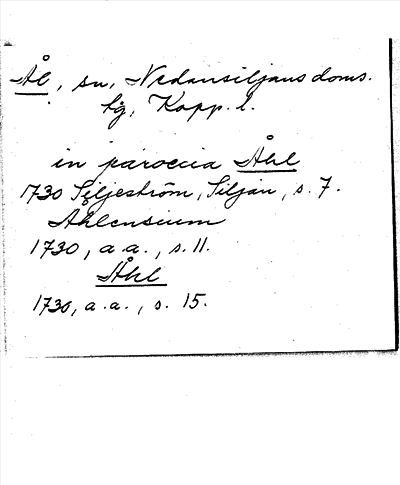 Ål, sn, Nedansiljans doms.
hg, Kopp. l.
in paroecia Åhl
1730 Siljeström, Siljan, s. 7.
Ahlensium
1730, a.a., s. 11.
Åhl
1730, a.a., s. 15.